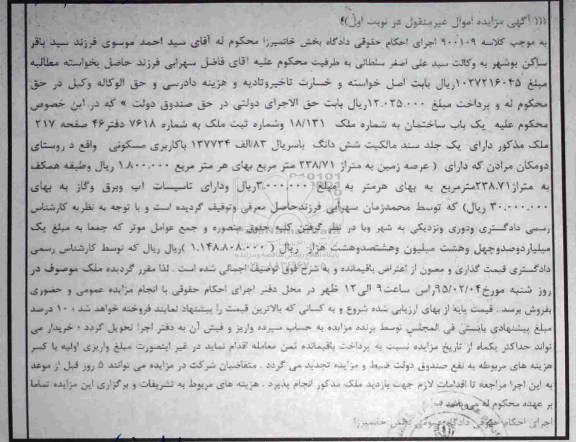 ((( آگهی مزایده اموال غیرمنقول در نوبت اول))
به موجب کلاسه ۹۰۰۱۰۹ اجرای احکام حقوقی دادگاه بخش خانمیرزا محکوم له آقای سید احمد موسوی فرزند سید باقر
ساکن بوشهر به وکالت سید علی اصغر سلطانی به طرفیت محکوم علیه آقای فاضل سهرابی فرزند حاصل بخواسته مطالبه
مبلغ ۱۰۲۷۲۱۶۰۴۵ریال بابت اصل خواسته و خسارت تاخیروتادیه و هزینه دادرسی و حق الوکاله وکیل در حق
محکوم له و پرداخت مبلغ ۱۲.۰۳۵.۰۰۰ریال بابت حق الاجرای دولتی در حق صندوق دولت » که در این خصوص
محکوم علیه یک باب ساختمان به شماره ملک ۱۸/۱۳۱ وشماره ثبت ملک به شماره ۷۶۱۸ دفتر۴۶ صفحه ۲۱۷
ملک مذکور دارای یک جلد سند مالکیت شش دانگ باسریال ۸۳/الف ۱۳۷۷۳۴ باکاربری مسکونی واقع در روستای
دومکان مرادن که دارای ( عرصه زمین به متراژ ۲۳۸/۷۱ متر مربع بهای هر متر مربع ۱.۸۰۰.۰۰۰ ریال وطبقه همکف
به متراژ۲۳۸.۷۱مترمربع به بهای هرمتر به مبلغ ۳.۰۰۰.۰۰۰ریال ودارای تاسیسات اب وبرق وگاز به بهای
۳۰.۰۰۰.۰۰۰ ریال) که توسط محمدزمان سهرابی فرزندحاصل معرفی وتوقیف گردیده است و با توجه به نظریه کارشناس
رسمی دادگستری ودوری ونزدیکی به شهر وبا در نظر گرفتن کلیه حقوق متصوره و جمع عوامل موثر که جمعا به مبلغ یک
میلیاردوصدوچهل وهشت میلیون وهشتصدوهشت هزار ریال ( ۱.۱۴۸.۸۰۸.۰۰۰ )ریال ریال که توسط کارشناس رسمی
دادگستری قیمت گذاری و مصون از اعتراض باقیمانده و به شرح فوق توصیف اجمالی شده است . لذا مقرر گردیده ملک موصوف در
روز شنبه مورخ۹۵/۰۲/۰۴راس ساعت۹ الی۱۲ ظهر در محل دفتر اجرای احکام حقوقی با انجام مزایده عمومی و حضوری
بفروش برسد . قیمت پایه از بهای ارزیابی شده شروع و به کسانی که بالاترین قیمت را پیشنهاد نمایند فروخته خواهد شد ؛ ۱۰ درصد
مبلغ پیشنهادی بایستی فی المجلس توسط برنده مزایده به حساب سپرده واریز و فیش آن به دفتر اجرا تحویل گردد ؛ خریدار می
تواند حداکثر یکماه از تاریخ مزایده نسبت به پرداخت باقیمانده ثمن معامله اقدام نماید در غیر اینصورت مبلغ واریزی اولیه با کسر
هزینه های مربوطه به نفع صندوق دولت ضبط و مزایده تجدید می گردد . متقاضیان شرکت در مزایده می توانند ۵ روز قبل از موعد
به این اجرا مراجعه تا اقدامات لازم جهت بازدید ملک مذکور انجام پذیرد . هزینه های مربوط به تشریفات و برگزاری این مزایده تماما
بر عهده محکوم له می باشد
اجرای احکام حقوقی دادگاه عمومی بخش خانمیرزا